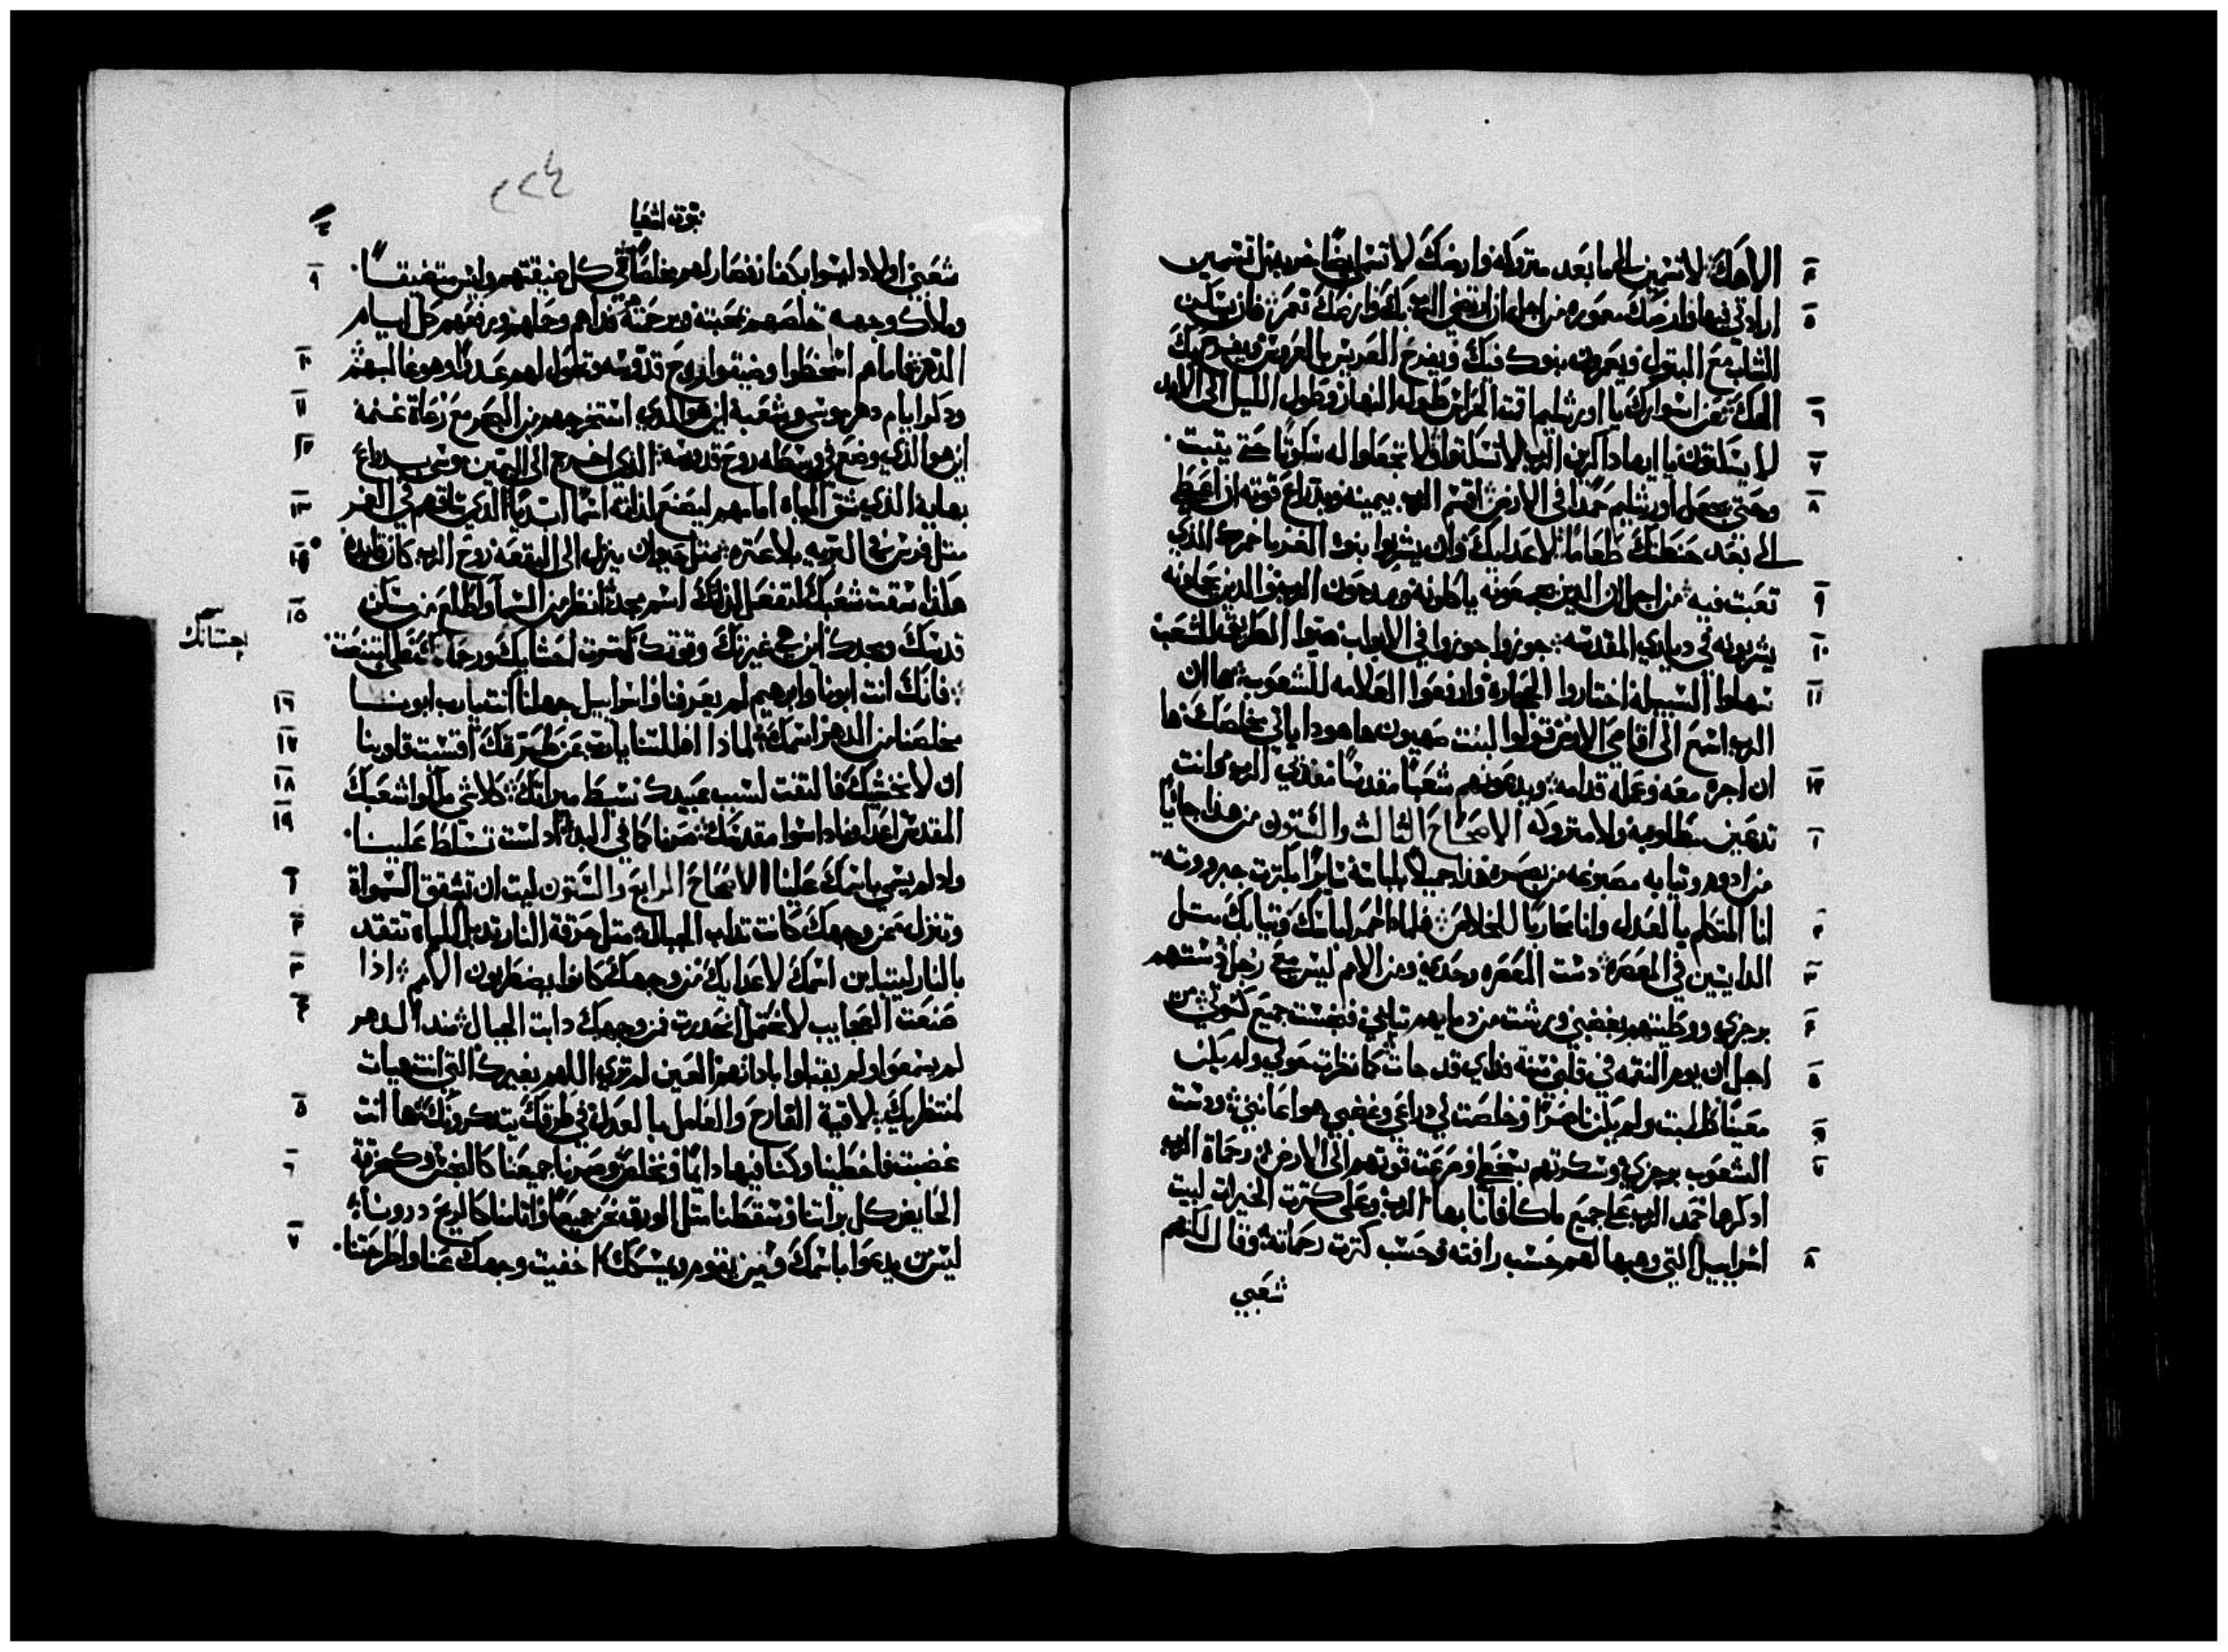 الاهك لا تسمين الى ما بعد متروكه وارضك لا تسما ايضا خربه بل تسمين
ارادتي فيها وارضك معموره من اجل ان ارتضى الرب بك وارضك تعمر فانه يسكن
الشاب مع البتول ويعمرون بنوك فيك ويفرح العريس بالعروس ويفرح بك
الهك على اسوارك يا اورشليم اقمت الحراس طول النهار وطول الليل الى الابد
لا يسكتون يا ايها داكرين الرب لا تسكتوا ولا تجعلوا له سكوتا حتى يتبت
وحتى يجعل اورشليم حمدا في الارض اقسم الرب بيمينه وبدراع قوته ان اعطي
الى بعد حنطتك طعاما لاعدايك وان يشربوا بنوا الغربا خمرك الذي
تعبت فيه من اجل ان الذين يجمعونه ياكلونه ويمدحون الرب والذين يحملونه
يشربونه في دياري المقدسه جوزوا جوزوا في الابواب هيوا الطريق للشعب
سهلوا السبيل اختاروا الحجاره وارفعوا العلامه للشعوب ها ان
الرب اسمع الى اقاصي الارض قولوا لبنت صهيون ها هودا ياتي مخلصك ها
ان اجره معه وعمله قدامه ويدعونهم شعبا مقدسا مفدي الرب وانت
تدعين مطلوبه ولا متروكه الاصحاح التالت والستون من هذا جاييا
من ادوم وتيابه مصبوغه من بصره هذا جميلا بلباسه سايرا بكترت جبرووته
انا المتكلم بالعدل وانا محاربا للخلاص فلمادا احمر لباسك وتيابك متل
الدايسين في المعصره دست المعصره وحدي ومن الامم ليس معي رجل دستهم
برجزي ووطيتهم بغضبي ورشت من دمايهم تيابي فنجست جميع كسوتي من
اجل ان يوم النقمه في قلبي سنة فداي قد جات كما نظرت حولي ولم يكن
معينا طلبت ولم يكن ناصرا وخلصت لي دراعي وغضبي هو اعانني ودست
الشعوب برجزي وسكرتهم بسخطي ومرغت قوتهم الى الارض رحماة الرب
ادكرها حمد الرب على جميع ما كافانا بها الرب وعلى كترت الخيرات لبيت
اسراييل التي وهبها لهم حسب رافته وحسب كترت رحماته وقال لكنهم
شعبي
٢٢٤
نبوة اشعيا
شعبي اولاد ليسوا يكفا نفصار لهم مخلصا في كل ضيقتهم وليس متضيقا
وملاك وجهه خلصهم بمحبته وبرحمته فداهم وحملهم ورفعهم كل ايام
الدهر فاما هم اسخطوا وضيقوا روح قدسه وتحول لهم عدوا وهو غالبهم
ودكر ايام دهر موسى وشعبه اين هو الذي استخرجهم من البحر مع رعاة غنمه
اين هو الذي وضع في وسطه روح قدوسه الذي اخرج الى اليمين موسى بدراع
بهايه الذي شق المياه امامهم ليصنع لذاته اسما ابديا الذي ساقهم في الغمر
متل فرس في البريه بلا عتره متل حيوان ينزل الى البقعه روح الرب كان قايده
هكذا سقت شعبك لتفعل لذلك اسم مجد انظر من السما واطلع من مسكن
قدسك ومجدك اين هي غيرتك وقوتك كترت احشايك ورحماتك على امتنعت
احتنانك
فانك انت ابونا وابرهيم لم يعرفنا واسراييل جهلنا انت يا رب ابونا
مخلصنا من الدهر اسمك لماذا اضللتنا يا رب عن طريقك اقسيت قلوبنا
ان لا نخشيك فالتفت لسبب عبيدك نسبط ميراتك كلا شي ملكوا شعبك
المقدس اعداينا داسوا مقدسك صرنا كما في البدا اد لست تسلط علينا
واد لم يسمى باسمك علينا الاصحاح الرابع والستون ليت ان تشقق السمواة
وتنزل من وجهك كانت تداب الجبال متل حرقة النار تدبل المياه تتقد
بالنار ليتباين اسمك لاعدايك من وجهك كانوا يضطربون الامم اذا
صنعت العجايب لا نحتمل انحدرت فمن وجهك دابت الجبال مند الدهر
لم يسمعوا ولم يقبلوا بادانهم العين لم تري اللهم بغيرك التي انت هيات
لمنتظريك لاقية الفارح والعامل بالعدل في طرقك يتدكرونك ها انت
غضبت فاخطينا وكنا فيها دايما ونخلص وصرنا جميعنا كالنجس وكخرقة
الحايض كل براتنا وسقطنا متل الورق نحن جميعا واتامنا كالريح درونا
ليس من يدعوا باسمك ومن يقوم ويمسكك اخفيت وجهك عنا واطرحتنا